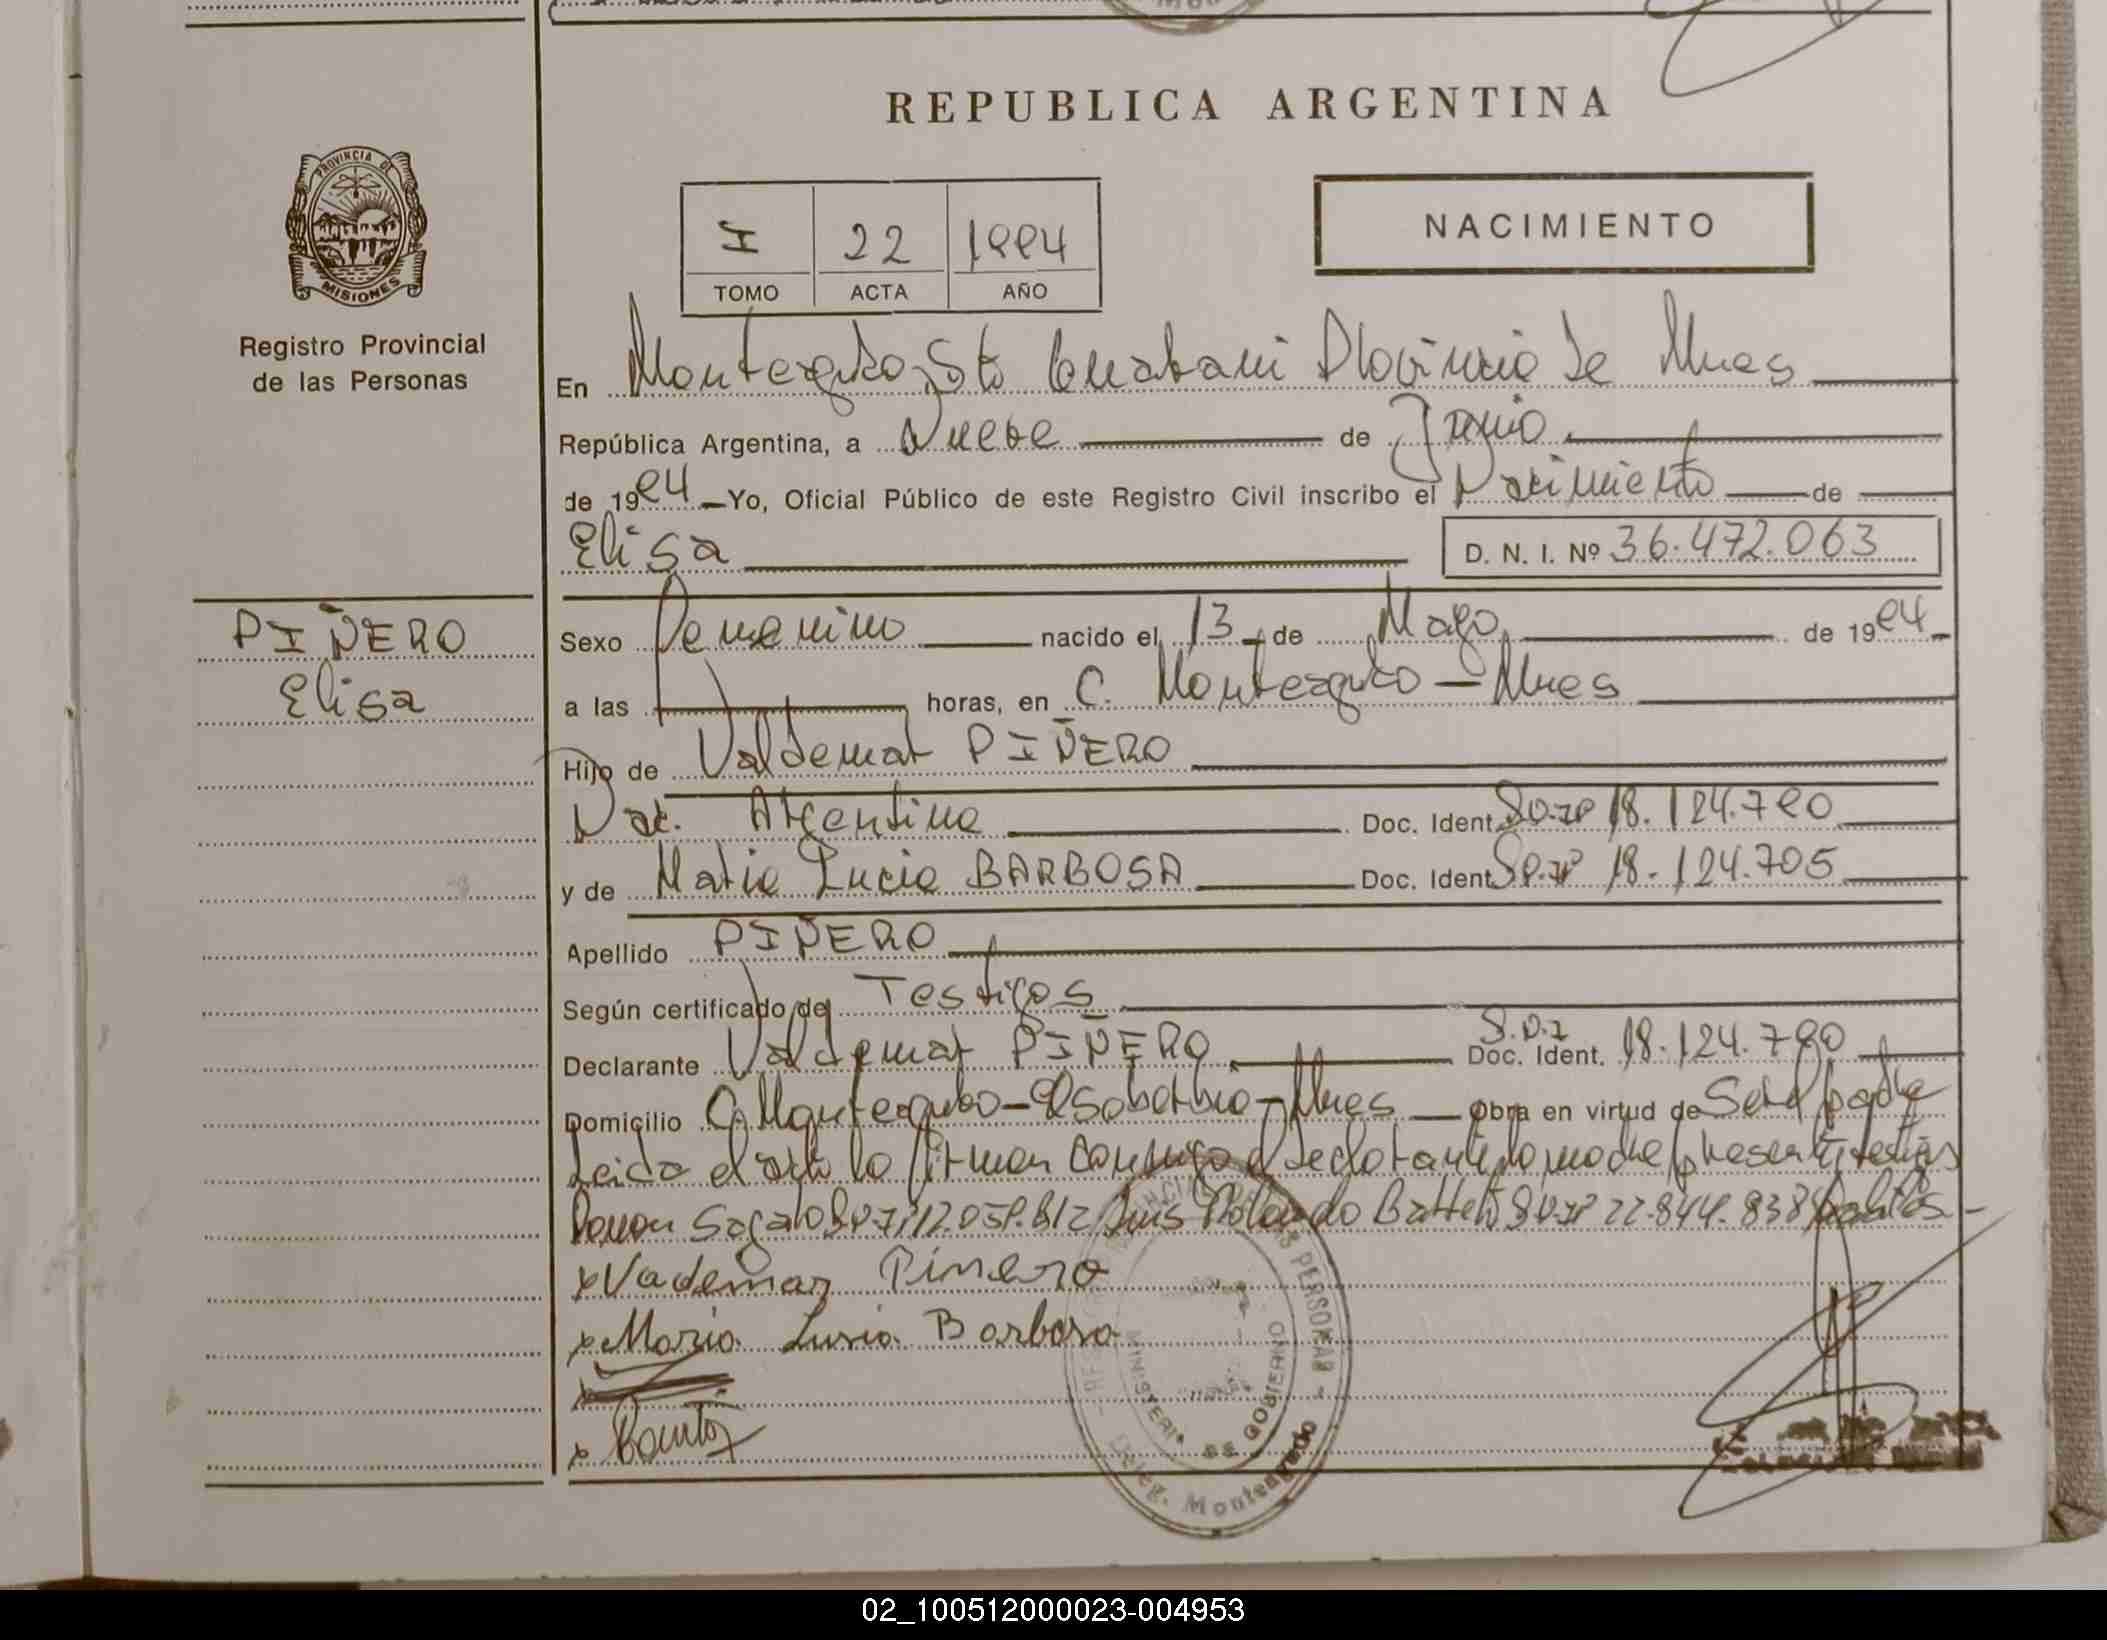 REPUBLICA ARGENTINA
PROVINCIA DE
MISIONES
Registro Provincial
de las Personas
I 22 1994
TOMO ACTA AÑO
NACIMIENTO
En Monteagudo, Gto Guarani Provincia de Mnes
República Argentina, a Nueve de Junio
de 1994 Yo, Oficial Público de este Registro Civil inscribo el Nacimiento de
Elisa D. N. I. Nº 36.472.063
PIÑERO
Elisa
Sexo Femenino nacido el 13 de Mayo de 1994
a las horas, en C. Monteagudo - Mnes
Hijo de Valdemar PIÑERO
Nac. Argentina Doc. Ident. 18.124.790
y de Maria Lucia BARBOSA Doc. Ident. 18.124.705
Apellido PIÑERO
Según certificado de Testigos
Declarante Valdemar PIÑERO Doc. Ident. 18.124.790
Domicilio C. Monteagudo - El Soberbio - Mnes Obra en virtud de Ser el padre
Leida el acta la firman conmigo el declarante la madre presente testigos
Ramon Luis Rolando 22.844.838 habiles
x Vademar Pinero
x Maria Lusia Barbosa
x
x
MINISTERIO DE GOBIERNO
Deleg. Monteagudo
02_100512000023-004953